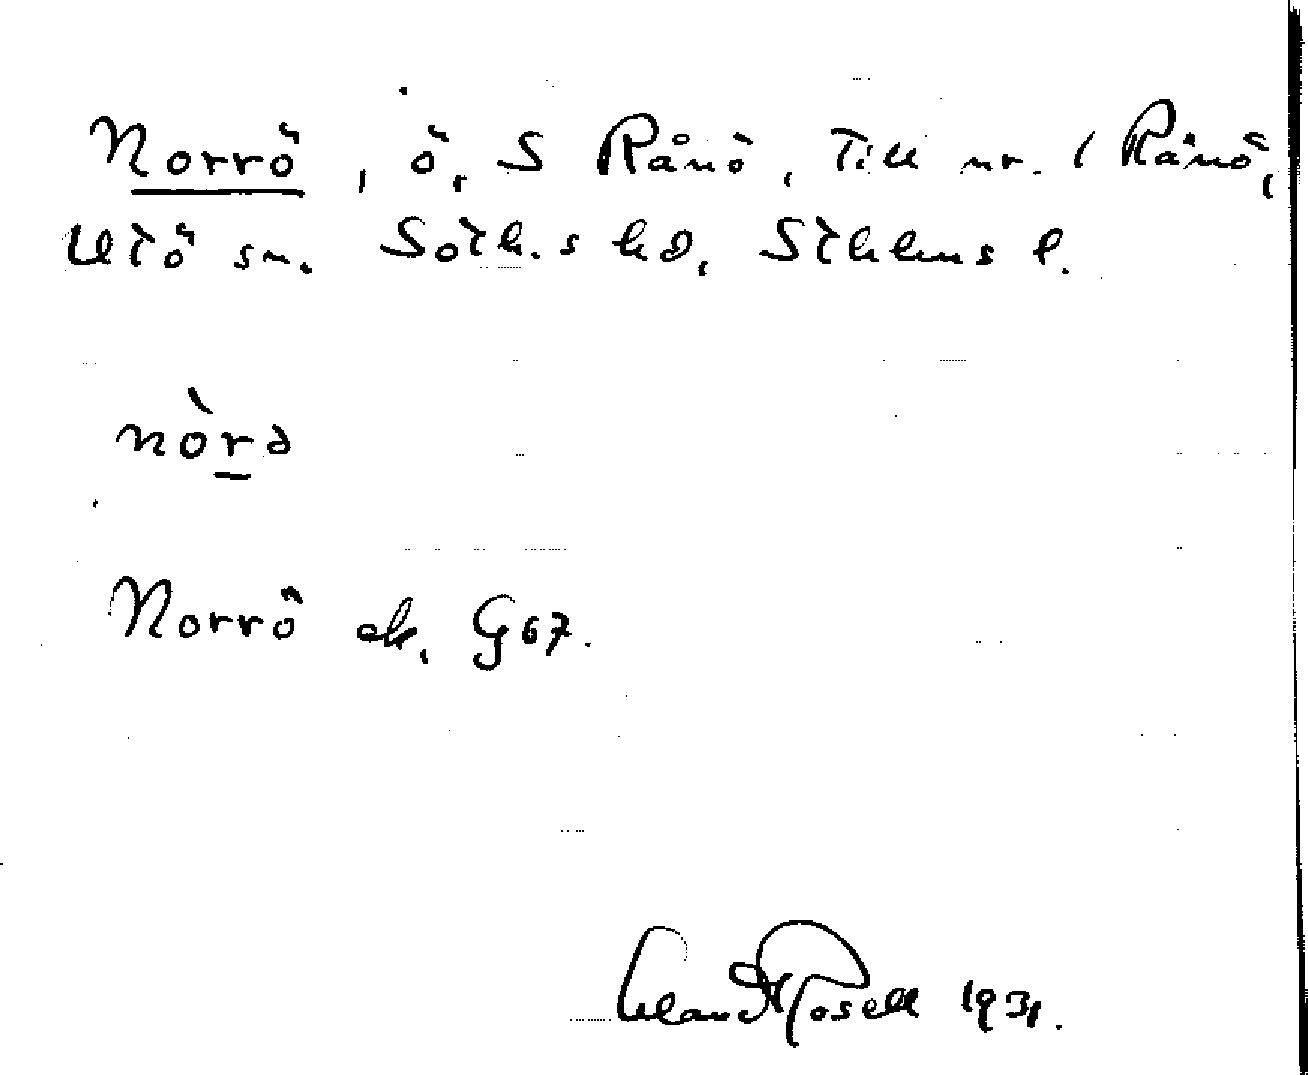 Norrö, ö, S Rånö, Till nr. 1 Rånö,
Utö sn. Soth.s hd, Sthlms l.
nòrə
Norrö ek. G 67.
Erland Rosell 1931.